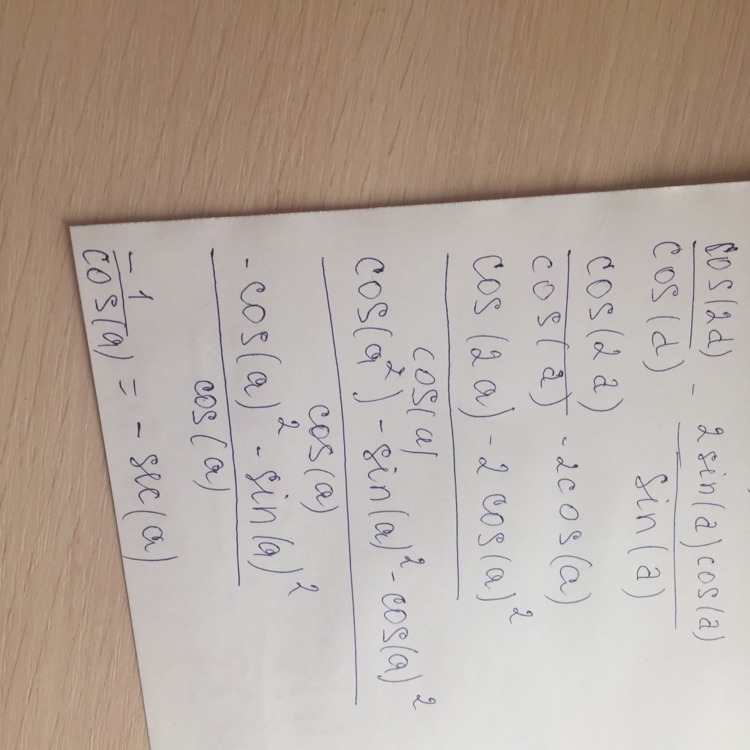 cos(2d) - 2sin(a)cos(a)
cos(d) sin(a)
cos(2a)
cos(a) - 2cos(a)
cos(2a) - 2cos(a)²
cos(a)
cos(a²) - sin(a)² - cos(a)²
cos(a)
-cos(a)² - sin(a)²
cos(a)
-1
cos(a) = - sec(a)